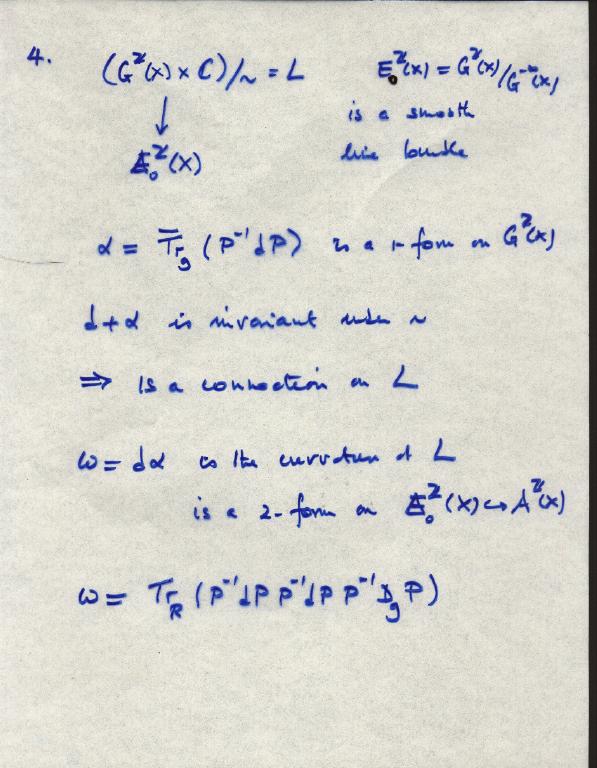 4. (G^Z(X) × C)/∼ = L E_0^Z(X) = G^Z(X)/G^{-∞}(X)
↓ is a smooth
E_0^Z(X) line bundle
α = \overline{Tr}_g (P^{-1}dP) is a 1-form on G^Z(X)
d+α is invariant under ∼
⇒ is a connection on L
ω = dα is the curvature of L
is a 2-form on E_0^Z(X) ↪ A^Z(X)
ω = Tr_R (P^{-1}dP P^{-1}dP P^{-1}D_g P)